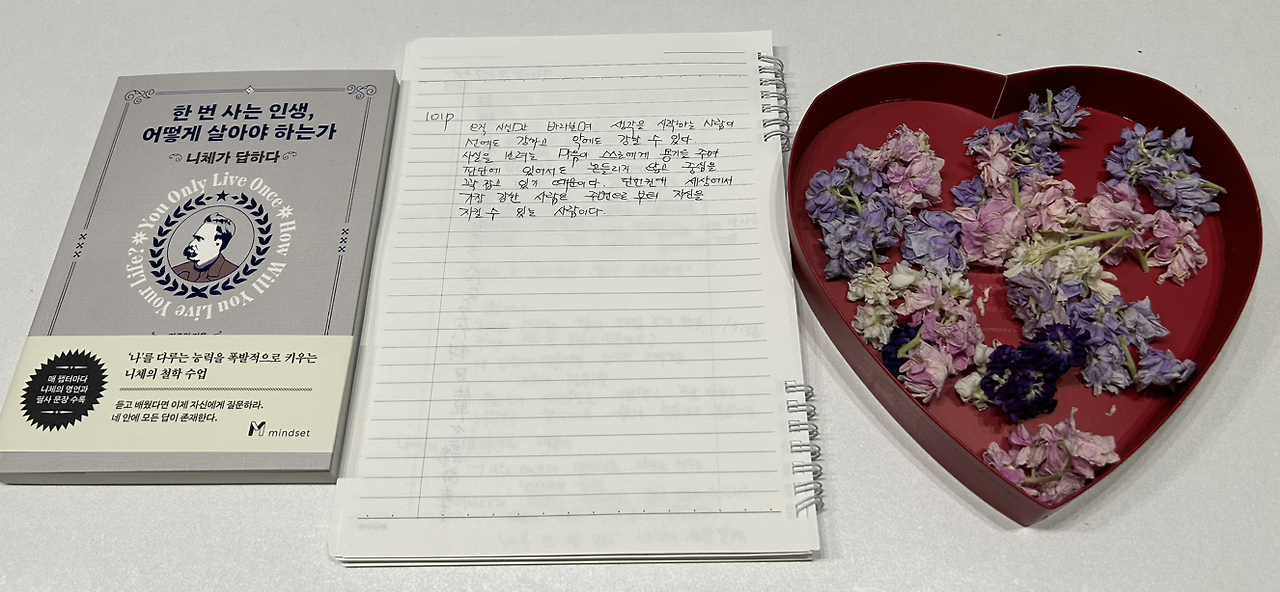 한 번 사는 인생,
어떻게 살아야 하는가
니체가 답하다
You Only Live Once How Will You Live Your Life?
'나'를 다루는 능력을 폭발적으로 키우는
니체의 철학 수업
매 챕터마다
니체의 명언과
필사 문장 수록
듣고 배웠다면 이제 자신에게 질문하라.
네 안에 모든 답이 존재한다.
mindset
101p
오직 사실만 바라보며 생각을 시작하는 사람이
선에도 강하고 악에도 강할 수 있다
사실을 보려는 마음이 스스로에게 용기를 주며
판단에 있어서도 흔들리지 않고 중심을
꽉 잡고 있기 때문이다. 단언컨대 세상에서
가장 강한 사람은 주변으로부터 자신을
지킬 수 있는 사람이다.